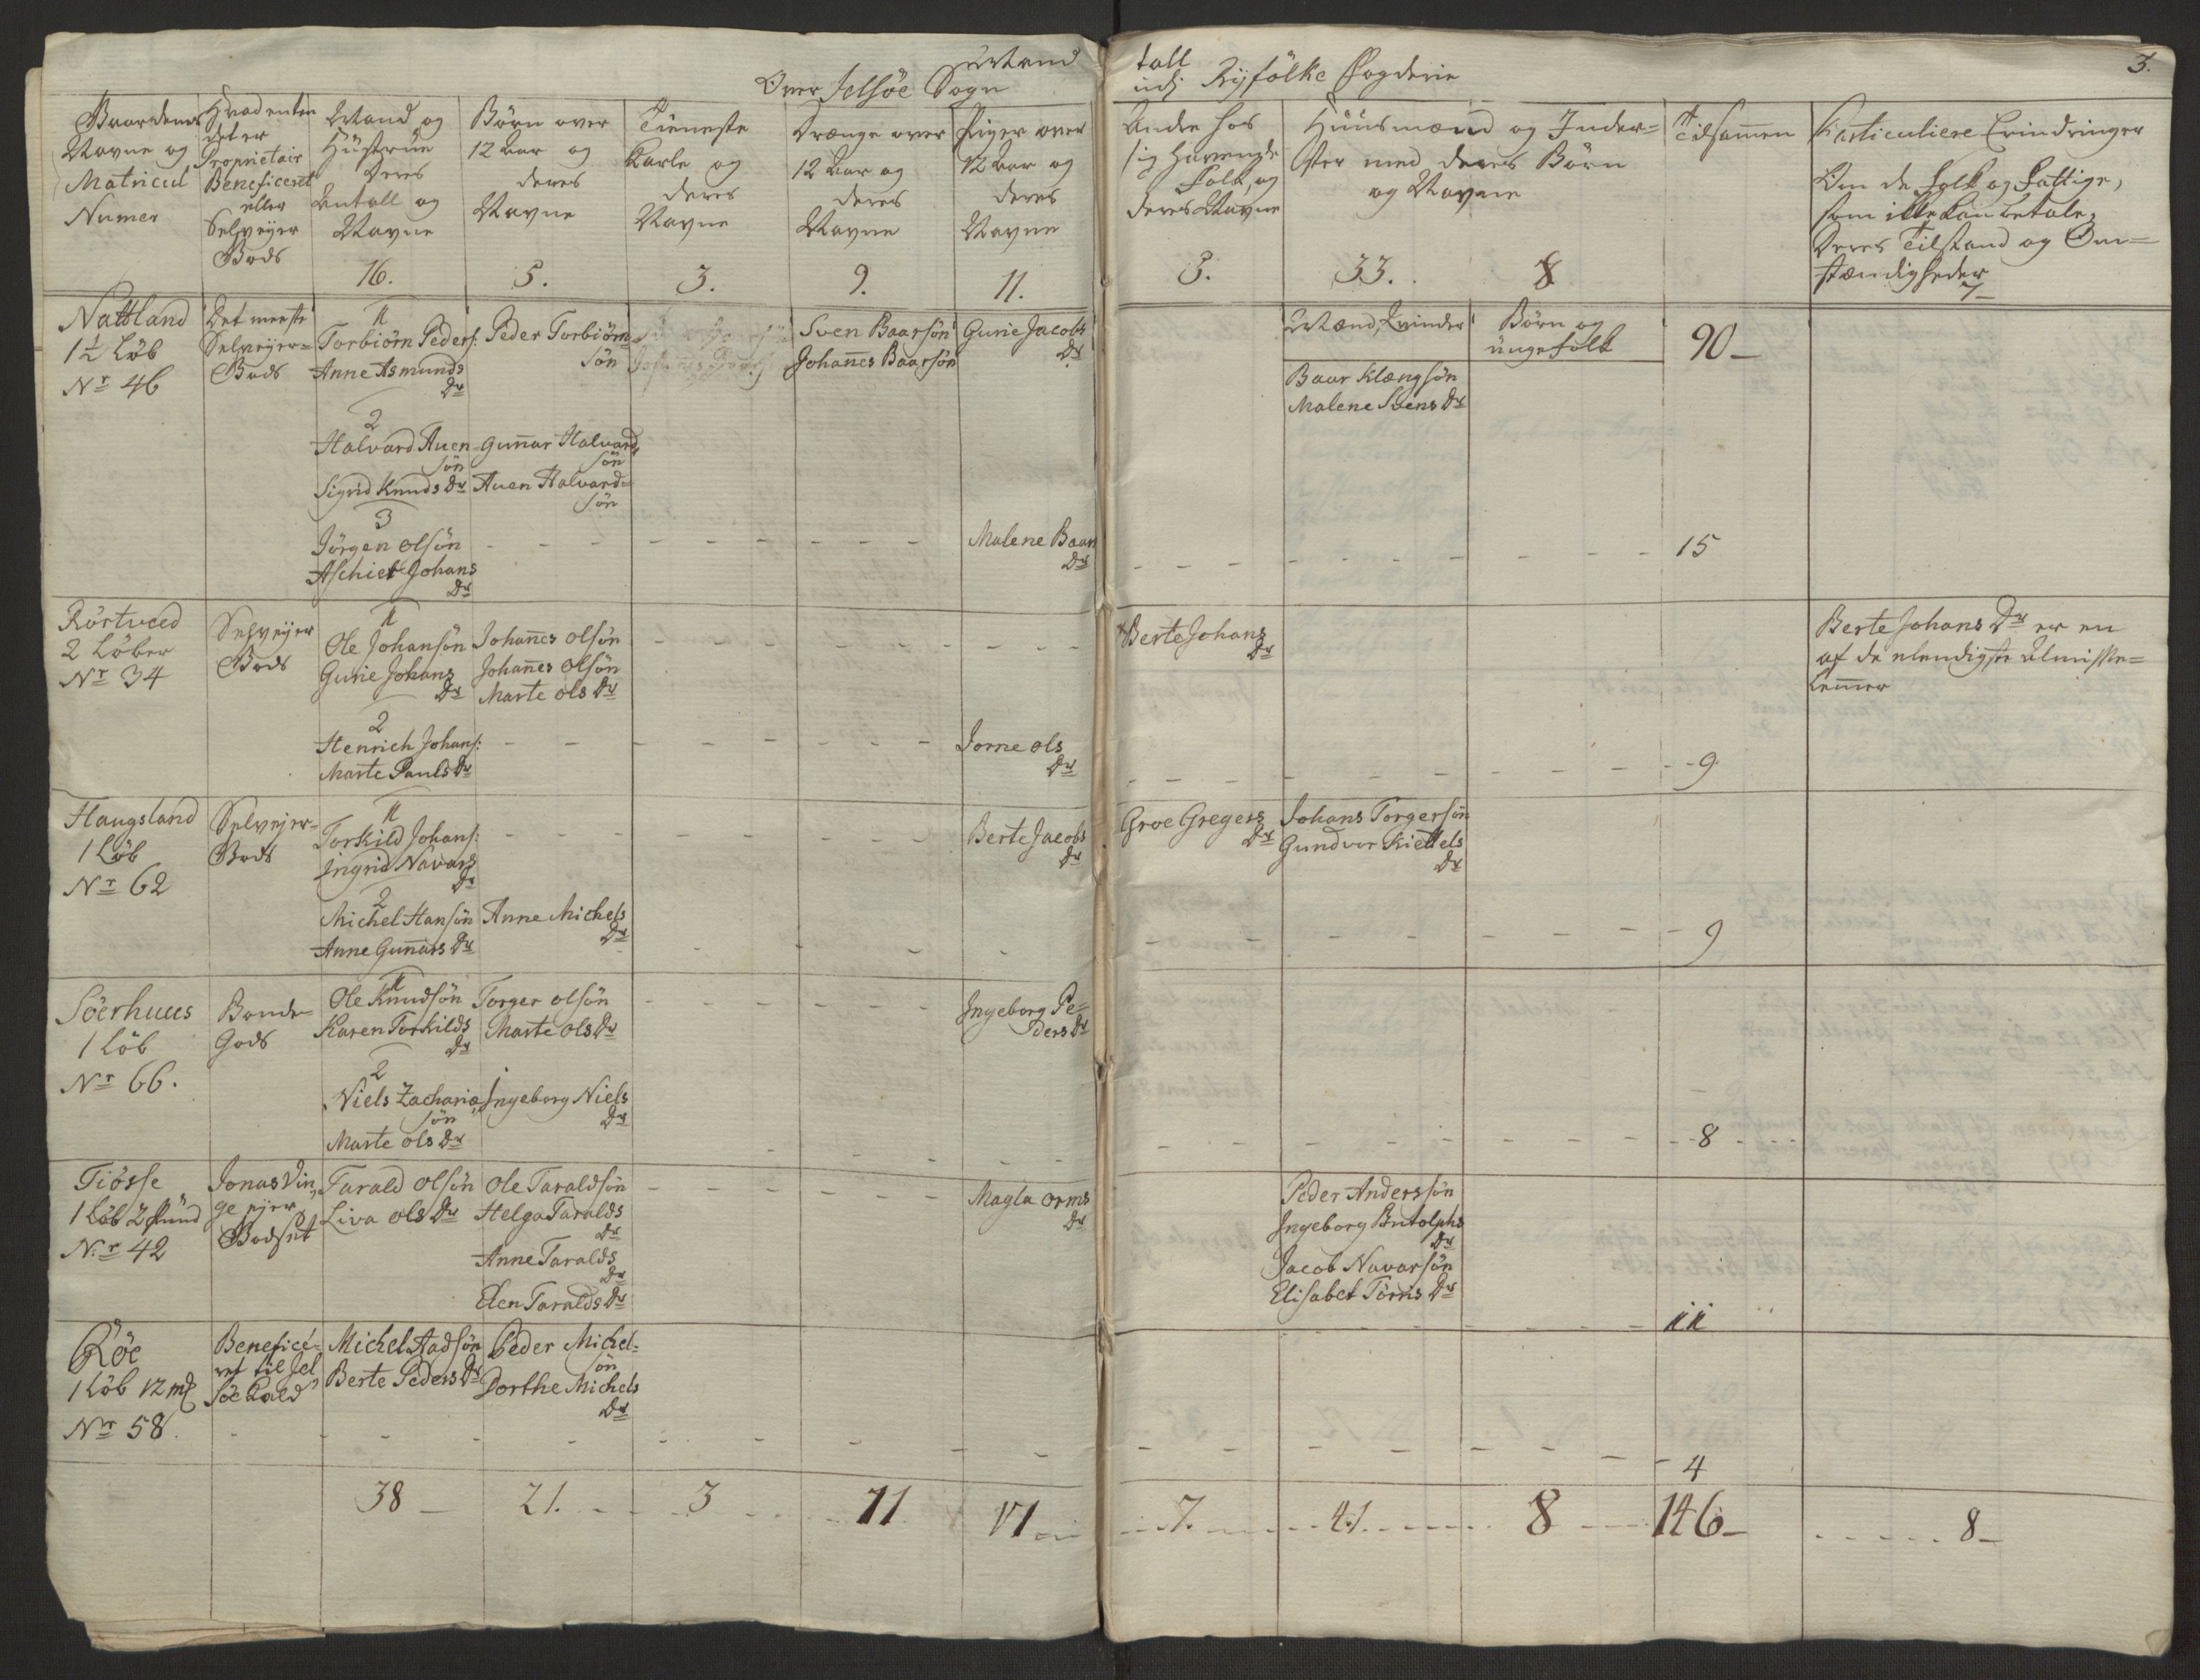 Mand tall
Over Jelsöe Sogn udj Ryfölke Fogderie
3.
Gaardenes Navne og Matricul Numer
Hvad enten det er Proprietair Beneficeret eller Selveyer Gods
Mand og Hustrue Deres Antall og Navne
Börn over 12 Aar og deres Navne
Tieneste Karle og deres Navne
Drænge over 12 Aar og deres Navne
Piger over 12 Aar og deres Navne
Andre hos sig havende Folk, og deres Navne
Huusmænd og Inderster med deres Börn og Navne
Tilsamen
Particuliere Erindringer
Om de Folk og Fattige,
som ikke kan betale,
Deres Tilstand og Om=
stændigheder
16. 5. 3. 9. 11. 5. 33. 8 7
Mænd, Kvinder
Börn og unge folk
90
Nattland
1½ Löb
Nr 46
Det meeste
Selveyer=
Gods
1
Torbiörn Peders:
Anne Asmunds
Dr
Peder Torbiörn=
sön
Sven Baarsön
Johanes Baarsön
Gurie Jacobs
Dr
Baar Klængsön
Malene Svens Dr
2
Halvard Auen
sön
Sigrid Knuds Dr
Gunar Halvard
sön
Auen Halvard=
sön
3
Jörgen Olsön
Aschiet Johans
Dr
Malene Baars
Dr
15
Rörtveed
2 Löber
Nr 34
Selveyer
Gods
1
Ole Johansön
Gurie Johans
Dr
Johanes Olsön
Johanes Olsön
Marte Ols Dr
Berte Johans
Dr
Berte Johans Dr er en
af de elendigste Almisse=
Lemer
2
Henrich Johans:
Marte Pauls Dr
Jorne Ols
Dr
9
Haugsland
1 Löb
Nr 62
Selveyer=
Gods
1
Torkild Johans:
Jngrid Navars
Dr
Berte Jacobs
Dr
Groe Gregers
Dr
Johans Torgersön
Gundvor Kiettels
Dr
2
Michel Hansön
Anne Gunars Dr
Anne Michels
Dr
9
Söerhuus
1 Löb
Nr 66.
Bonde=
Gods
1
Ole Knudsön
Karen Torkilds
Dr
Torger Olsön
Marte Ols Dr
Jngeborg Pe=
ders Dr
2
Niels Zacharia
sön
Marte Ols Dr
Jngeborg Niels
Dr
8
Tiösse
1 Löb 2 Pund
Nr 42
Jonas Vin
ge eyer
Godset
Tarald Olsön
Liva Ols Dr
Ole Taraldsön
Helga Taralds
Dr
Anne Taralds
Dr
Elen Taralds Dr
Magla Orms
Dr
Peder Anderssön
Jngeborg Butolphs
Dr
Jacob Navarsön
Elisabet Törris Dr
11
Röe
1 Löb 12 mk
Nr 58.
Beneficé=
ret til Jel
söe Kald
Michel Aadsön
Berte Peders Dr
Peder Michel=
sön
Dorthe Michels
Dr
4
38 21. 3 11 17 7. 41 8 146 8